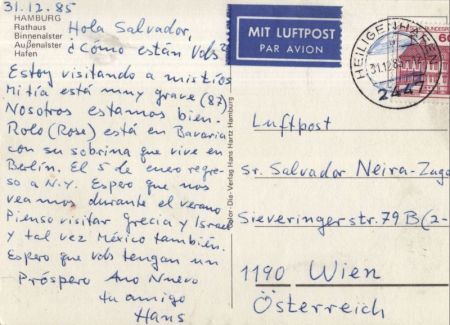 31.12.85
HAMBURG
Rathaus
Binnenalster
Außenalster
Hafen
Hola Salvador,
¿Cómo están Vds?
Estoy visitando a mis tíos
Mi tía está muy grave (87)
Nosotros estamos bien.
Rolo (Rose) está en Bavaria
con su sobrina que vive en
Berlín. El 5 de enero regre-
so a N.Y. Espero que nos
veamos durante el verano
Pienso visitar Grecia y Israel
y tal vez México también.
Espero que Vds tengan un
Próspero Ano Nuevo
tu amigo
Hans
Color-Dia-Verlag Hans Hartz Hamburg
MIT LUFTPOST
PAR AVION
HEILIGENHAFEN
31.12.85
2447
60
Luftpost
Sr. Salvador Neira-Zuga
Sieveringer str. 79 B (2-
1190 Wien
Österreich